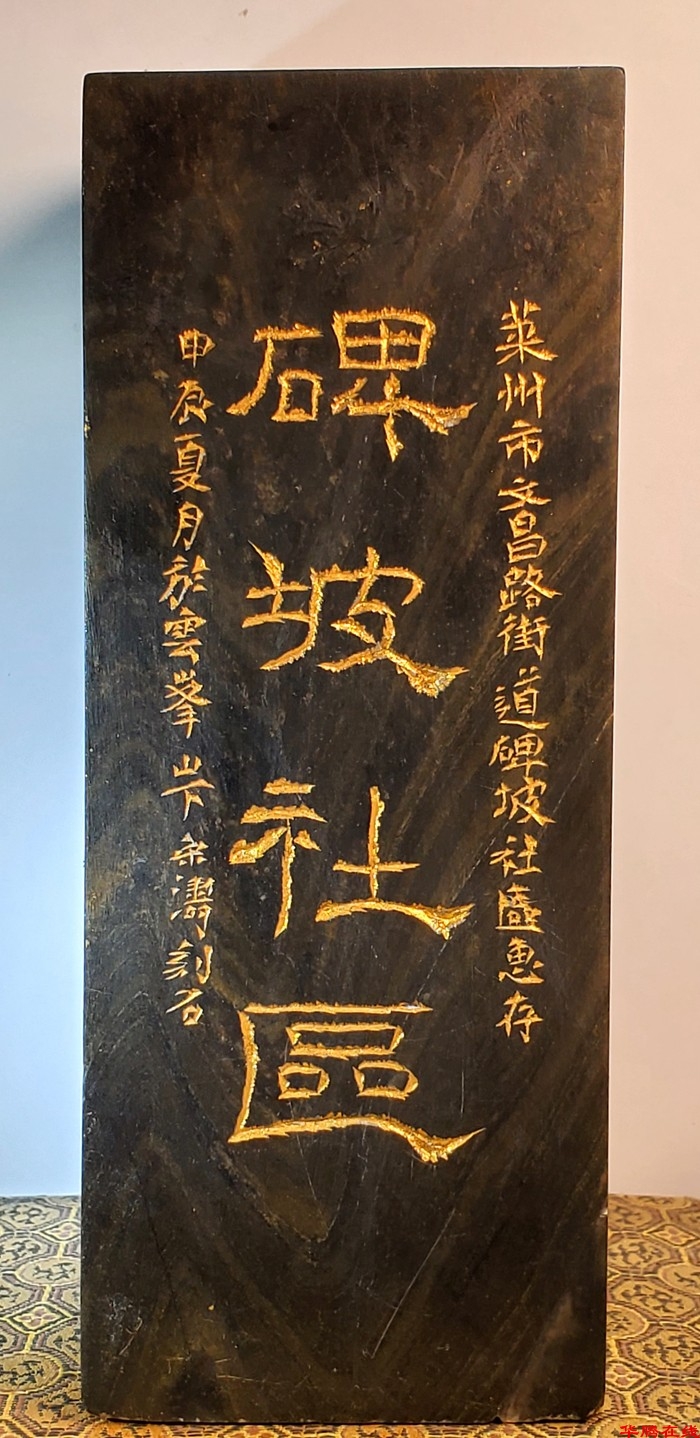 莱州市文昌路街道碑坡社區惠存
碑坡社區
甲辰夏月於雲峯山下宋濤刻石
华鹏在线